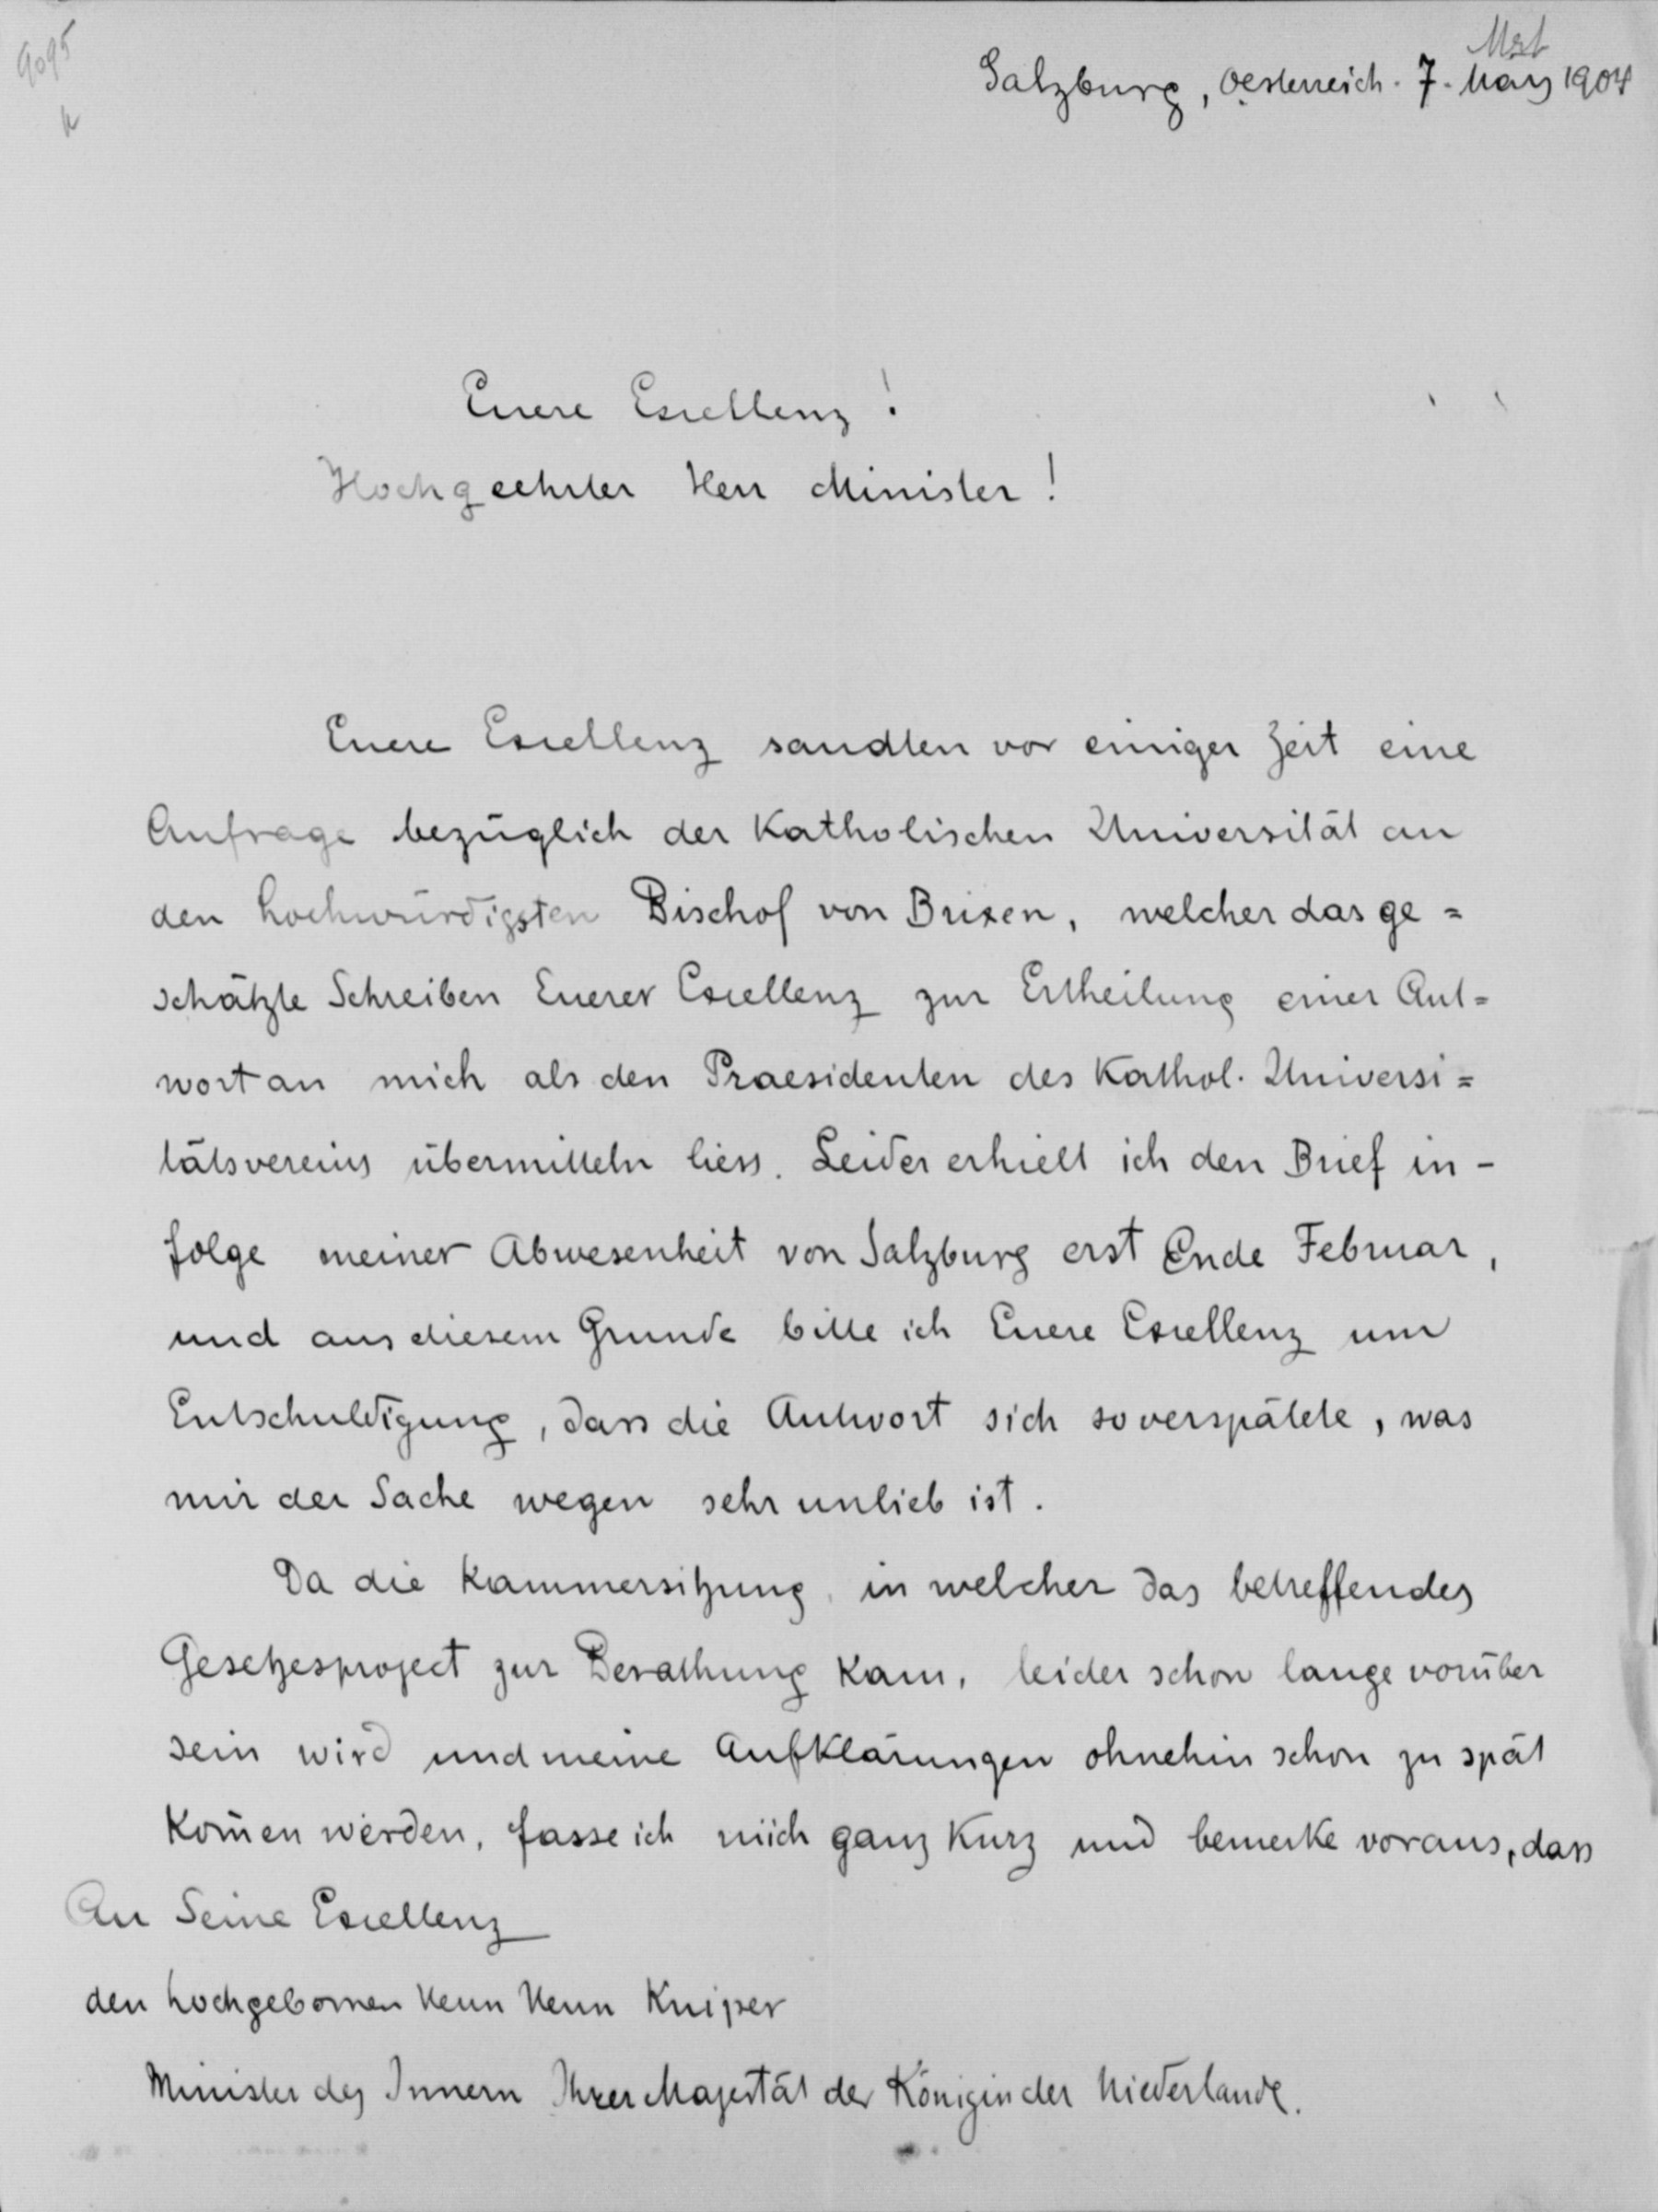 9095
Salzburg, Oesterreich. 7. März 1904
Euere Excellenz!
Hochgeehrter Herr Minister!
Euere Excellenz sandten vor einiger Zeit eine
Anfrage bezüglich der Katholischen Universität an
den hochwürdigsten Bischof von Brixen, welcher das ge=
schätzte Schreiben Euerer Excellenz zur Ertheilung einer Ant=
wort an mich als den Praesidenten des Kathol. Universi=
tätsvereins übermitteln liess. Leider erhielt ich den Brief in-
folge meiner Abwesenheit von Salzburg erst Ende Februar,
und aus diesem Grunde bitte ich Euere Excellenz um
Entschuldigung, dass die Antwort sich so verspätete, was
mir der Sache wegen sehr unlieb ist.
Da die Kammersitzung, in welcher das betreffendes
Gesetzesproject zur Berathung kam, leider schon lange vorüber
sein wird und meine Aufklärungen ohnehin schon zu spät
kom̄en werden, fasse ich mich ganz kurz und bemerke voraus, dass
An Seine Excellenz
den hochgebornen Herrn Herrn Kuiper
Minister des Innern Ihrer Majestät der Königin der Niederlande.